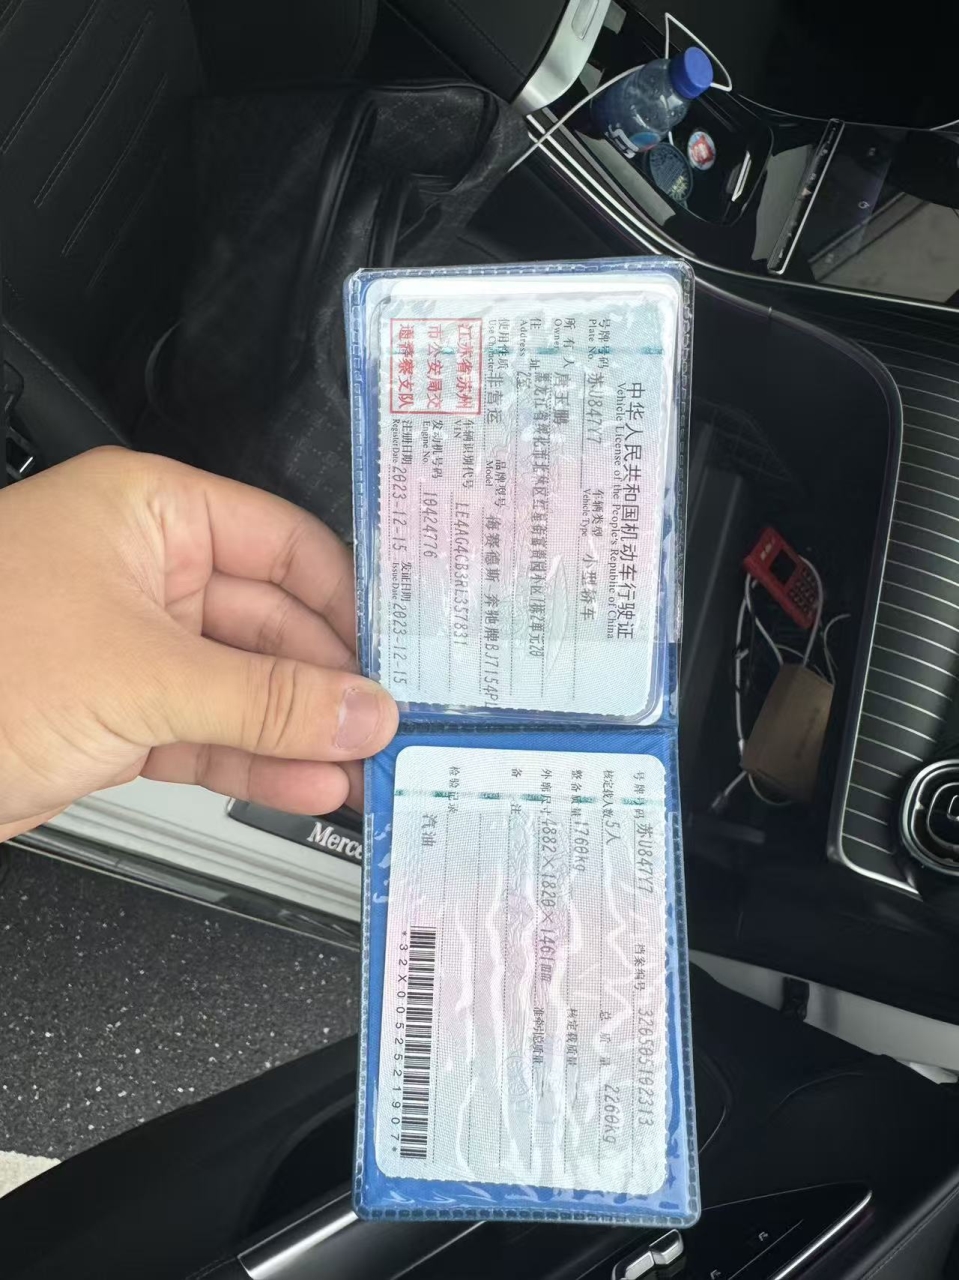 中华人民共和国机动车行驶证
Vehicle License of the People's Republic of China
号牌号码 苏U847Y7 车辆类型 小型轿车
Plate No. Vehicle Type
所有人
Owner
住址 黑龙江省绥化市北林区红星街富春园小区1栋2单元20
Address
使用性质 非营运 品牌型号 梅赛德斯-奔驰牌BJ7154
Use Character Model
江苏省苏州
市公安局交
通警察支队
车辆识别代号 LE4AG4CB3RL357831
VIN
发动机号码 10424776
Engine No.
注册日期 2023-12-15 发证日期 2023-12-15
Register Date Issue Date
号牌号码 苏U847Y7 档案编号 320505102313
核定载人数 5人 总质量 2260kg
整备质量 1760kg 核定载质量
外廓尺寸 4882×1820×1461mm 准牵引总质量
备注
检验记录 汽油
*32X0052521907*
Merce